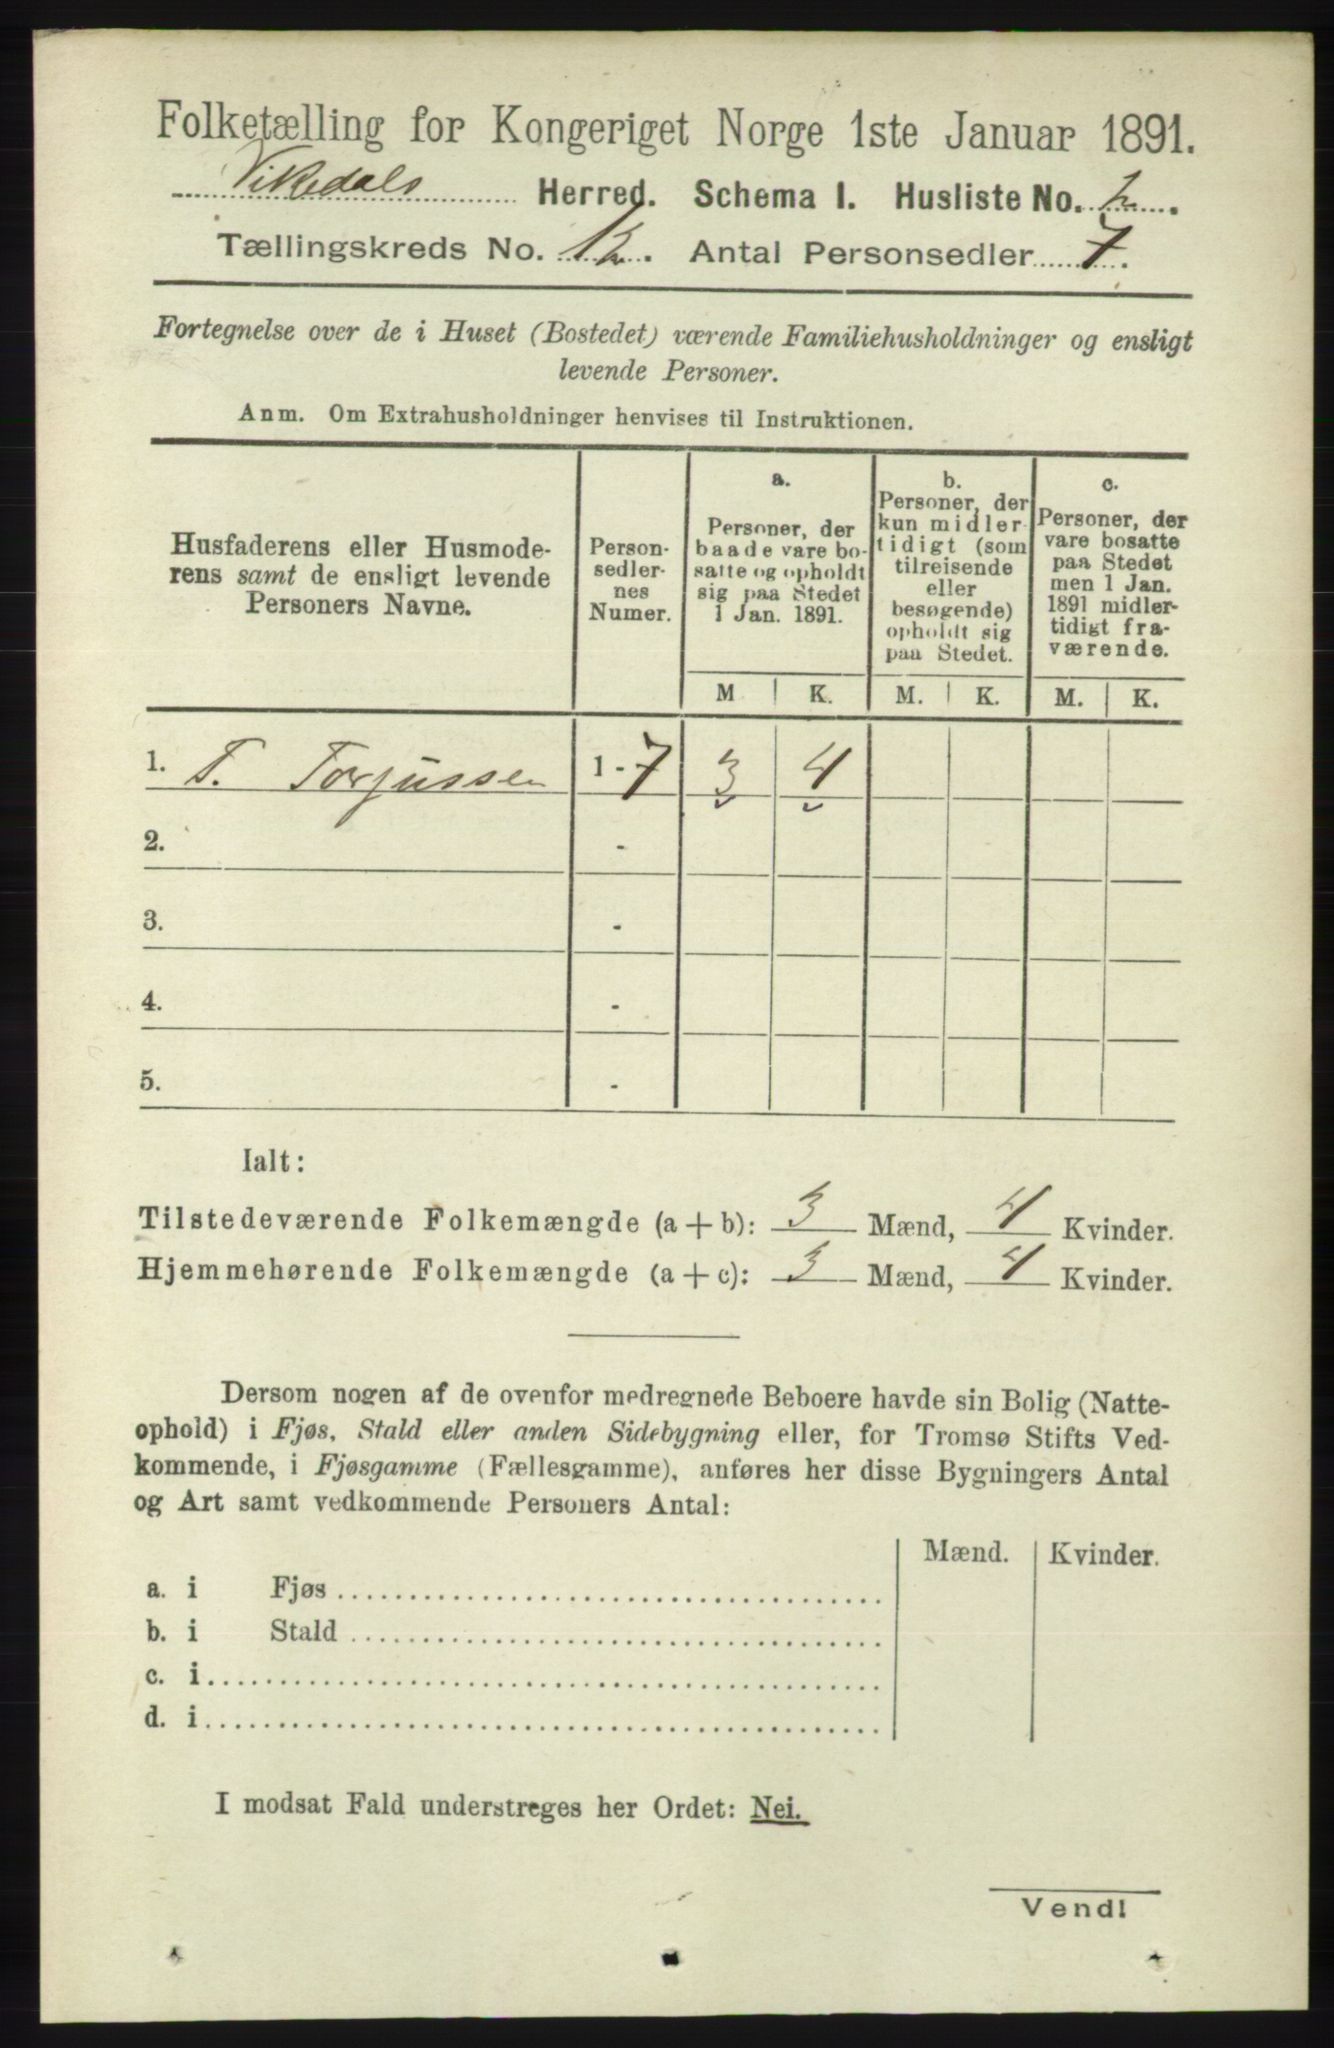 Folketælling for Kongeriget Norge 1ste Januar 1891.
Vikedals Herred. Schema I. Husliste No. 2.
Tællingskreds No. 12. Antal Personsedler 7.
Fortegnelse over de i Huset (Bostedet) værende Familiehusholdninger og ensligt
levende Personer.
Anm. Om Extrahusholdninger henvises til Instruktionen.
Husfaderens eller Husmode-
rens samt de ensligt levende
Personers Navne.
Person-
sedler-
nes
Numer.
a.
Personer, der
baade vare bo-
satte og opholdt
sig paa Stedet
1 Jan. 1891.
b.
Personer, der
kun midler-
tidigt (som
tilreisende
eller
besøgende)
opholdt sig
paa Stedet.
c.
Personer, der
vare bosatte
paa Stedet
men 1 Jan.
1891 midler-
tidigt fra-
værende.
M K. M. K. M. K.
1. T. Torjussen 1 - 7 3 4
2. -
3. -
4. -
5. -
Ialt:
Tilstedeværende Folkemængde (a + b): 3 Mænd, 4 Kvinder.
Hjemmehørende Folkemængde (a + c): 3 Mænd, 4 Kvinder.
Dersom nogen af de ovenfor medregnede Beboere havde sin Bolig (Natte-
ophold) i Fjøs, Stald eller anden Sidebygning eller, for Tromsø Stifts Ved-
kommende, i Fjøsgamme (Fællesgamme), anføres her disse Bygningers Antal
og Art samt vedkommende Personers Antal:
Mænd. Kvinder.
a. i Fjøs
b. i Stald
c. i
d. i
I modsat Fald understreges her Ordet: Nei.
Vend!